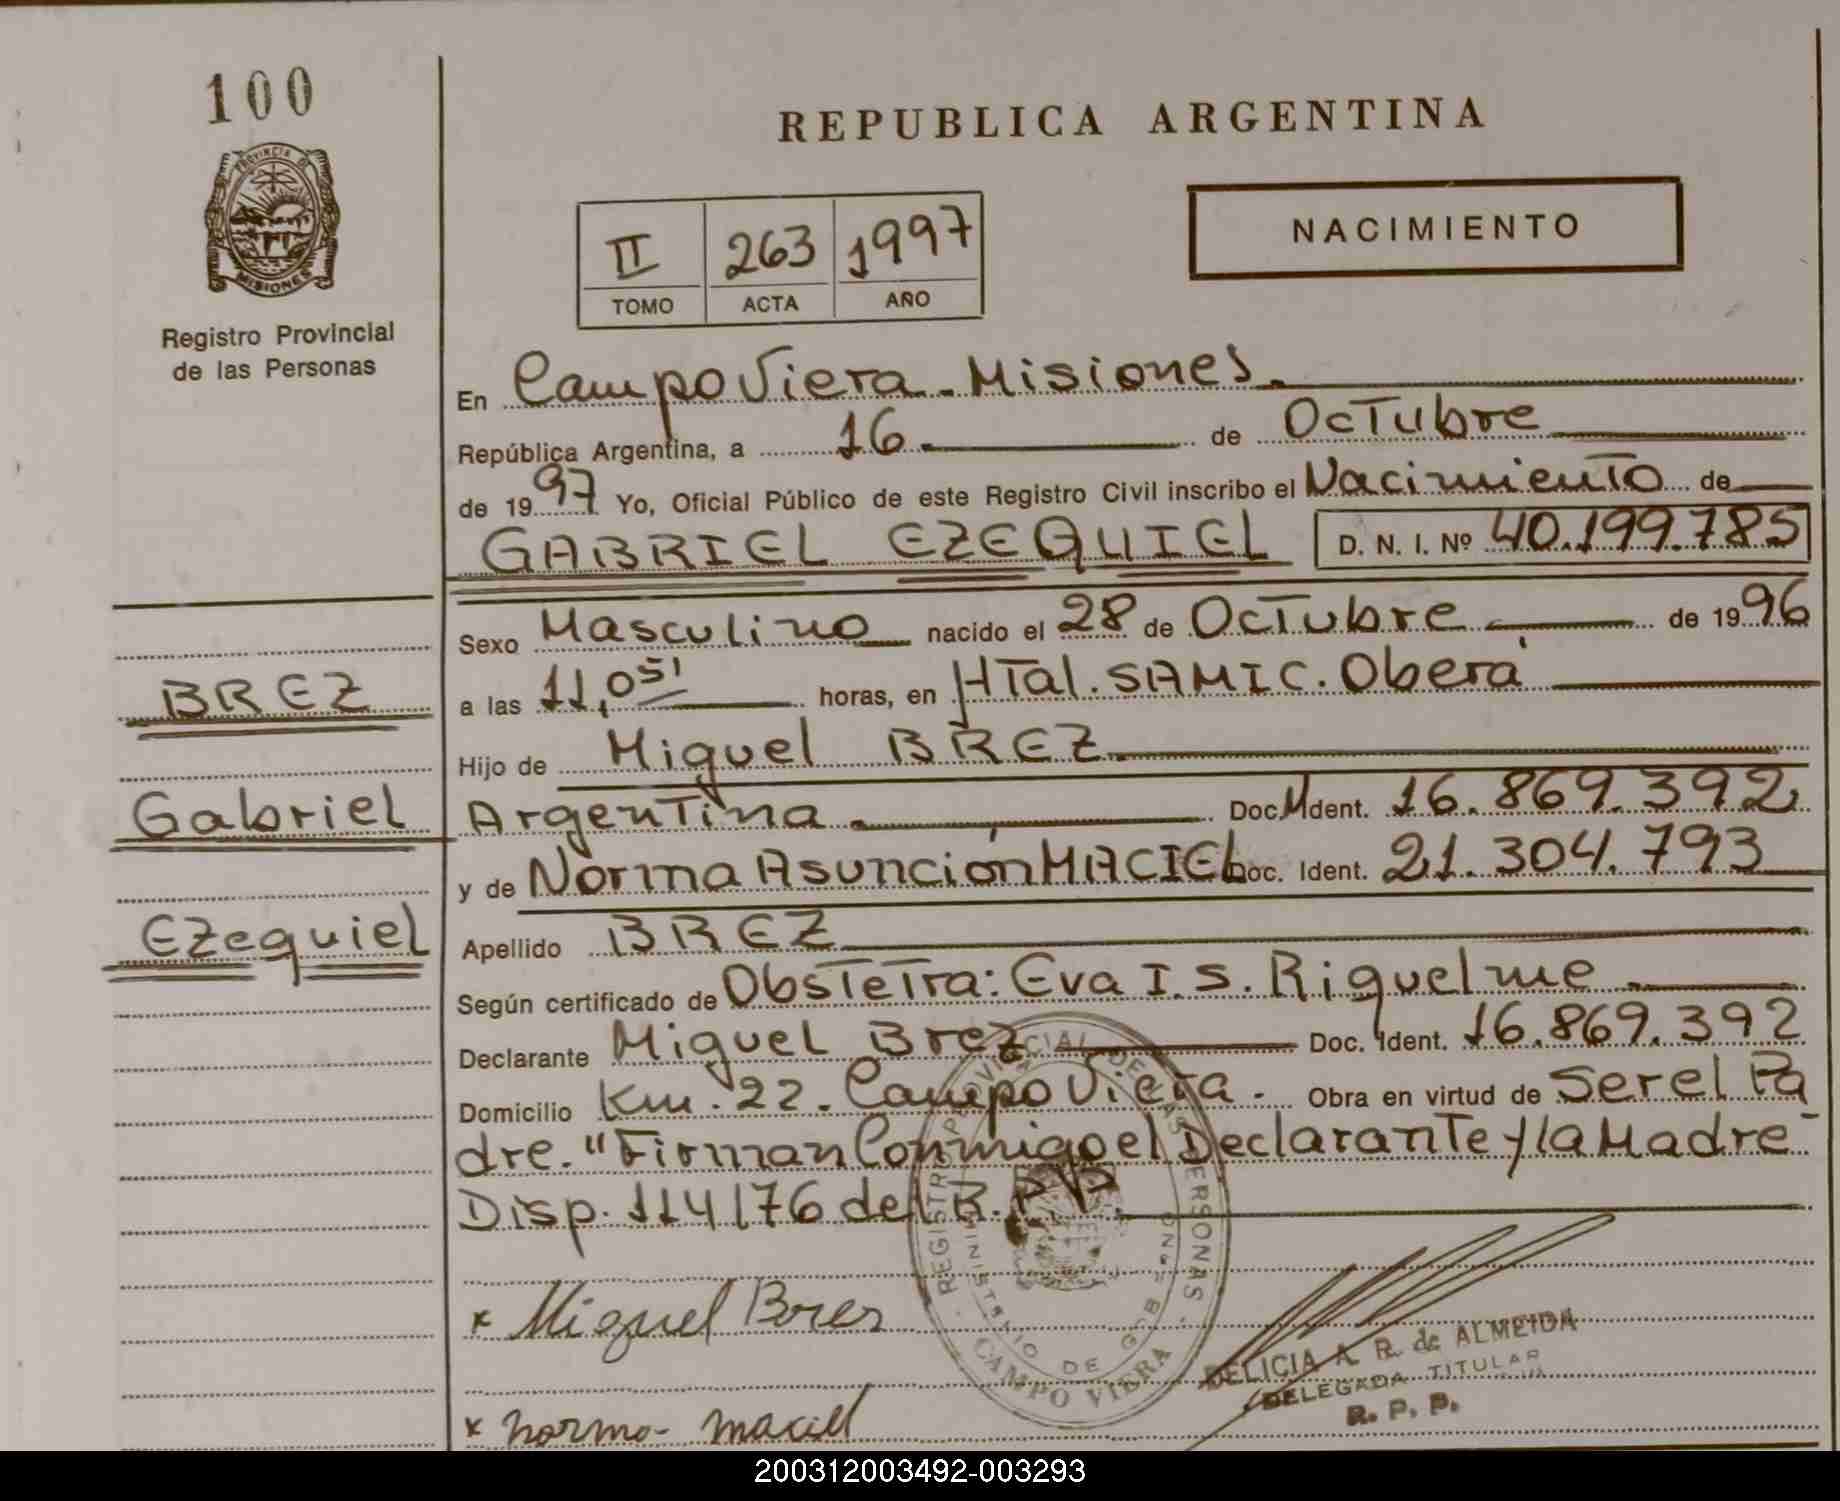 100
PROVINCIA DE
MISIONES
Registro Provincial
de las Personas
REPUBLICA ARGENTINA
II 263 1997
TOMO ACTA AÑO
NACIMIENTO
En Campo Viera - Misiones.
República Argentina, a 16 de Octubre
de 1997 Yo, Oficial Público de este Registro Civil inscribo el Nacimiento de
GABRIEL EZEQUIEL D. N. I. Nº 40.199.785
Sexo Masculino nacido el 28 de Octubre de 1996
BREZ
a las 11,05' horas, en HTal. SAMIC. Oberá
Hijo de Miguel BREZ
Gabriel
Argentina Doc. M Ident. 16.869.392
y de Norma Asunción MACIEL Doc. Ident. 21.304.793
Ezequiel
Apellido BREZ
Según certificado de Obstetra: Eva I. S. Riquelme
Declarante Miguel Brez Doc. Ident. 16.869.392
Domicilio Km. 22. Campo Viera. Obra en virtud de Ser el Pa
dre. "Firman Conmigo el Declarante y la Madre"
Disp. 114/76 del R.P.P.
REGISTRO PROVINCIAL DE LAS PERSONAS
MINISTERIO DE GOB
CAMPO VIERA
x Miguel Brez
DELICIA A. R. de ALMEIDA
DELEGADA TITULAR
R. P. P.
x norma maciel
200312003492-003293